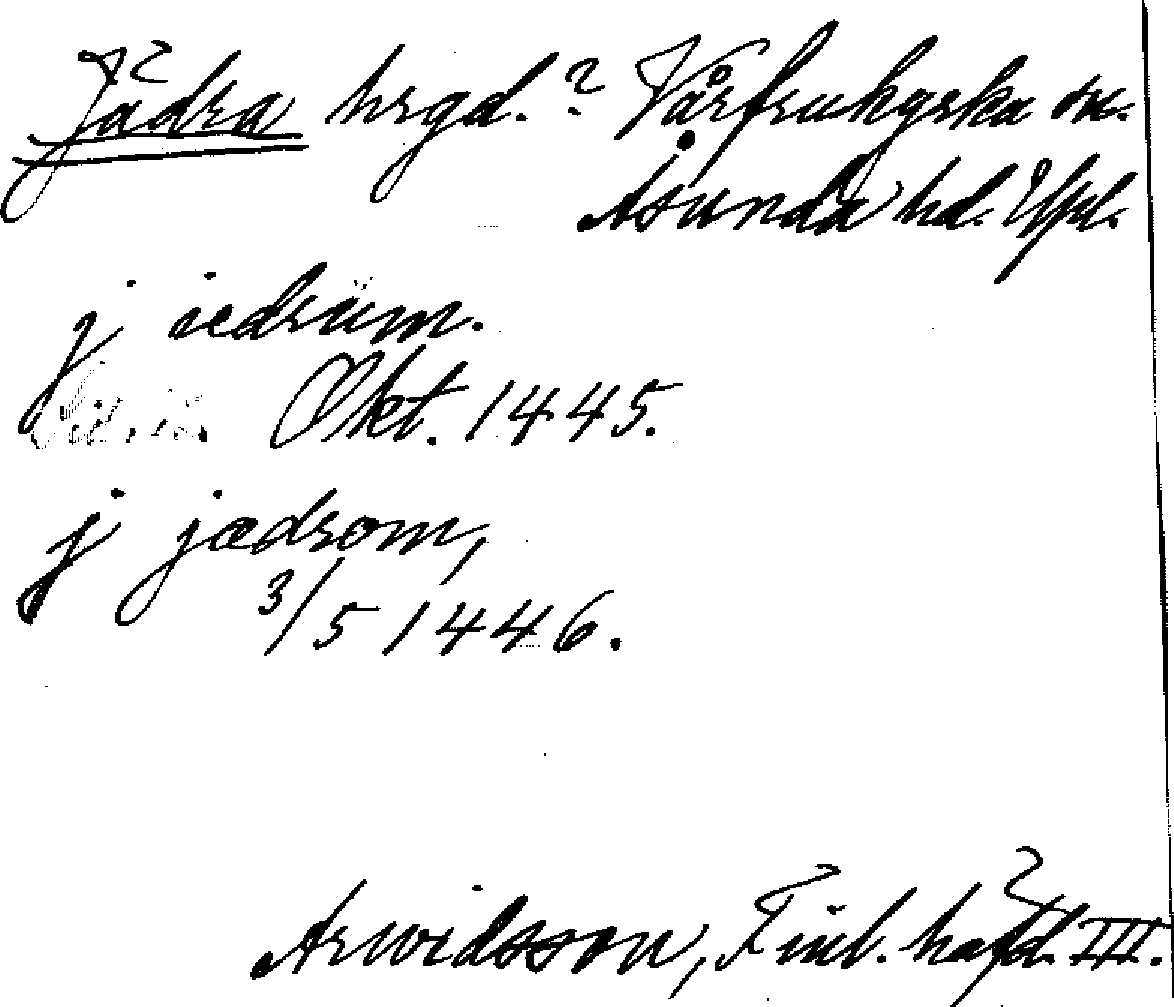 Jädra hrgd.? Vårfrukyrka sn.
Åsunda hd. Uppl.
j iedrum.
Okt. 1445.
j jædrom,
3/5 1446.
Arwidsson, Finl. häfd. III.